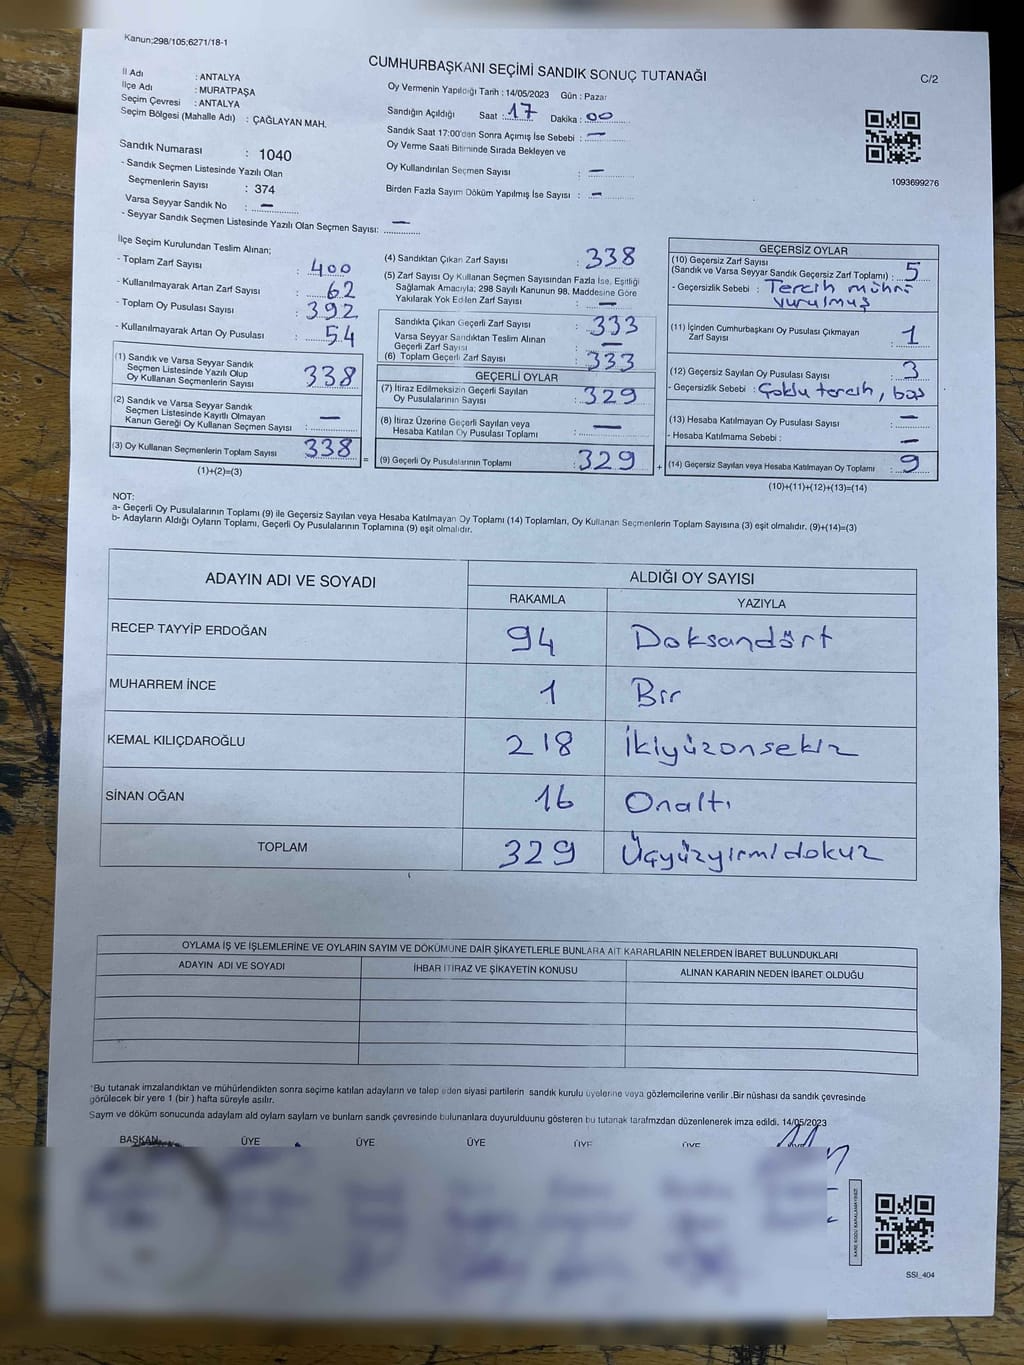 Kanun;298/105;6271/18-1
CUMHURBAŞKANI SEÇİMİ SANDIK SONUÇ TUTANAĞI
C/2
İl Adı : ANTALYA
İlçe Adı : MURATPAŞA
Seçim Çevresi : ANTALYA
Seçim Bölgesi (Mahalle Adı) : ÇAĞLAYAN MAH.
Oy Vermenin Yapıldığı Tarih : 14/05/2023 Gün : Pazar
Sandığın Açıldığı Saat : 17 Dakika : 00
Sandık Saat 17:00'den Sonra Açımış İse Sebebi : —
Oy Verme Saati Bitiminde Sırada Bekleyen ve
Oy Kullandırılan Seçmen Sayısı : —
Birden Fazla Sayım Döküm Yapılmış İse Sayısı : —
1093699276
Sandık Numarası : 1040
- Sandık Seçmen Listesinde Yazılı Olan
Seçmenlerin Sayısı : 374
Varsa Seyyar Sandık No : —
- Seyyar Sandık Seçmen Listesinde Yazılı Olan Seçmen Sayısı: —
İlçe Seçim Kurulundan Teslim Alınan;
- Toplam Zarf Sayısı : 400
- Kullanılmayarak Artan Zarf Sayısı : 62
- Toplam Oy Pusulası Sayısı : 392
- Kullanılmayarak Artan Oy Pusulası : 54
(1) Sandık ve Varsa Seyyar Sandık
Seçmen Listesinde Yazılı Olup
Oy Kullanan Seçmenlerin Sayısı : 338
(2) Sandık ve Varsa Seyyar Sandık
Seçmen Listesinde Kayıtlı Olmayan
Kanun Gereği Oy Kullanan Seçmen Sayısı : —
(3) Oy Kullanan Seçmenlerin Toplam Sayısı : 338
(1)+(2)=(3)
(4) Sandıktan Çıkan Zarf Sayısı : 338
(5) Zarf Sayısı Oy Kullanan Seçmen Sayısından Fazla İse, Eşitliği
Sağlamak Amacıyla; 298 Sayılı Kanunun 98. Maddesine Göre
Yakılarak Yok Edilen Zarf Sayısı : —
Sandıkta Çıkan Geçerli Zarf Sayısı : 333
Varsa Seyyar Sandıktan Teslim Alınan
Geçerli Zarf Sayısı : —
(6) Toplam Geçerli Zarf Sayısı : 333
GEÇERLİ OYLAR
(7) İtiraz Edilmeksizin Geçerli Sayılan
Oy Pusulalarının Sayısı : 329
(8) İtiraz Üzerine Geçerli Sayılan veya
Hesaba Katılan Oy Pusulası Toplamı : —
= (9) Geçerli Oy Pusulalarının Toplamı : 329
GEÇERSİZ OYLAR
(10) Geçersiz Zarf Sayısı
(Sandık ve Varsa Seyyar Sandık Geçersiz Zarf Toplamı) : 5
- Geçersizlik Sebebi : Tercih mührü
vurulmuş
(11) İçinden Cumhurbaşkanı Oy Pusulası Çıkmayan
Zarf Sayısı : 1
(12) Geçersiz Sayılan Oy Pusulası Sayısı : 3
- Geçersizlik Sebebi : Çoklu tercih, boş
(13) Hesaba Katılmayan Oy Pusulası Sayısı : —
- Hesaba Katılmama Sebebi : —
+ (14) Geçersiz Sayılan veya Hesaba Katılmayan Oy Toplamı : 9
(10)+(11)+(12)+(13)=(14)
NOT:
a- Geçerli Oy Pusulalarının Toplamı (9) ile Geçersiz Sayılan veya Hesaba Katılmayan Oy Toplamı (14) Toplamları, Oy Kullanan Seçmenlerin Toplam Sayısına (3) eşit olmalıdır. (9)+(14)=(3)
b- Adayların Aldığı Oyların Toplamı, Geçerli Oy Pusulalarının Toplamına (9) eşit olmalıdır.
ADAYIN ADI VE SOYADI
ALDIĞI OY SAYISI
RAKAMLA YAZIYLA
RECEP TAYYİP ERDOĞAN 94 Doksandört
MUHARREM İNCE 1 Bir
KEMAL KILIÇDAROĞLU 218 İkiyüzonsekiz
SİNAN OĞAN 16 Onaltı
TOPLAM 329 Üçyüzyirmidokuz
OYLAMA İŞ VE İŞLEMLERİNE VE OYLARIN SAYIM VE DÖKÜMÜNE DAİR ŞİKAYETLERLE BUNLARA AİT KARARLARIN NELERDEN İBARET BULUNDUKLARI
ADAYIN ADI VE SOYADI İHBAR İTİRAZ VE ŞİKAYETİN KONUSU ALINAN KARARIN NEDEN İBARET OLDUĞU
*Bu tutanak imzalandıktan ve mühürlendikten sonra seçime katılan adayların ve talep eden siyasi partilerin sandık kurulu üyelerine veya gözlemcilerine verilir .Bir nüshası da sandık çevresinde
görülecek bir yere 1 (bir ) hafta süreyle asılır.
Sayım ve döküm sonucunda adaylam ald oylarn saylarn ve bunlarn sandk çevresinde bulunanlara duyurulduunu gösteren bu tutanak tarafmzdan düzenlenerek imza edildi. 14/05/2023
BAŞKAN ÜYE ÜYE ÜYE ÜYE ÜYE
KARE KODU KARALAMAYINIZ!
SSI_404